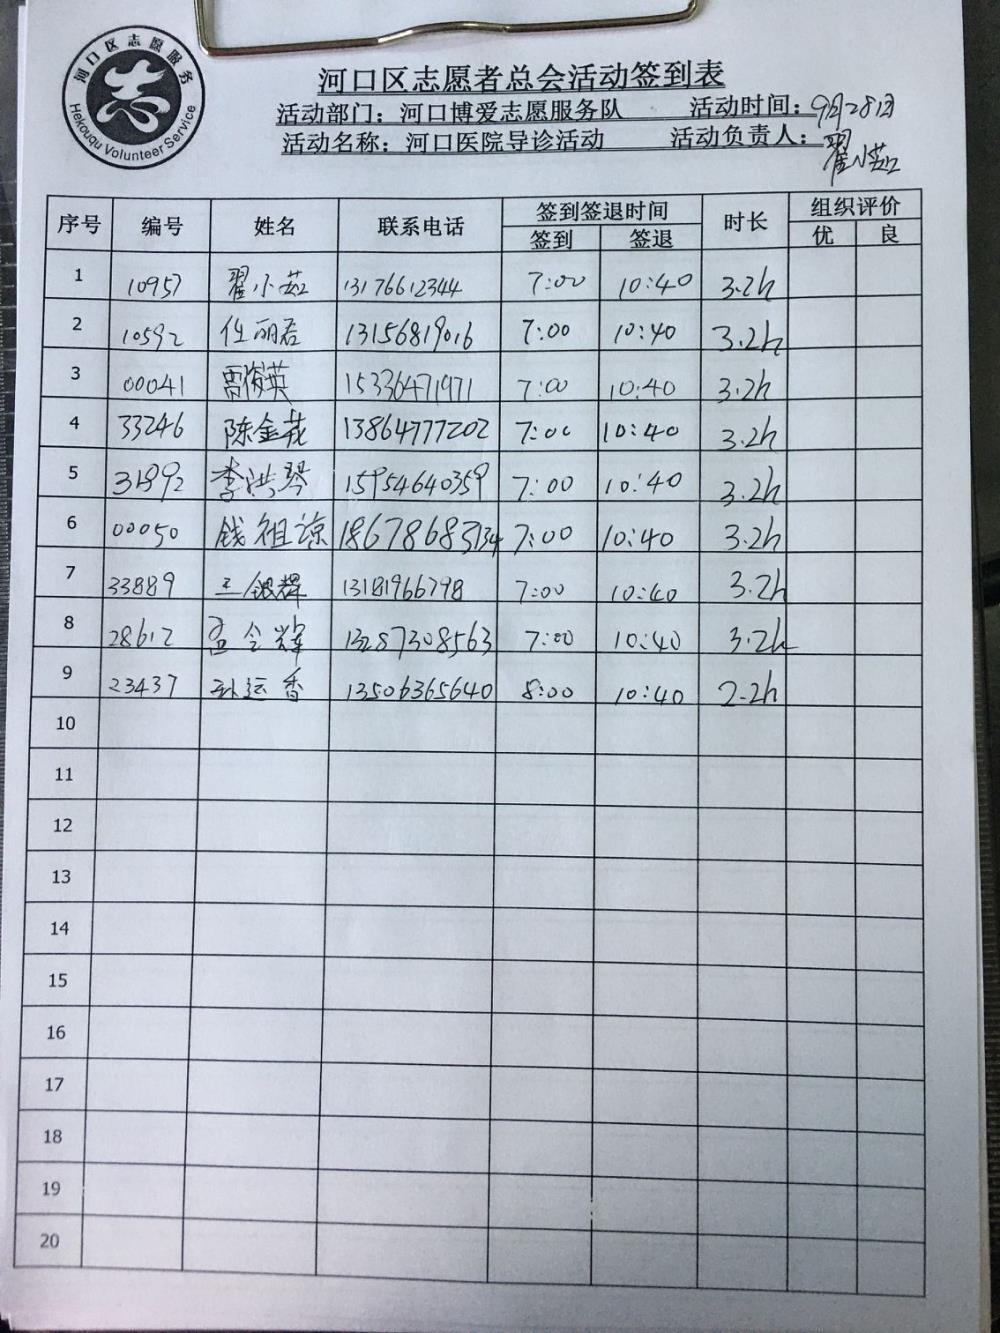 河口区志愿服务
Hekouqu Volunteer Service
河口区志愿者总会活动签到表
活动部门：河口博爱志愿服务队 活动时间：9月28日
活动名称：河口医院导诊活动 活动负责人：翟小茹
序号 编号 姓名 联系电话 签到签退时间 时长 组织评价
签到 签退 优 良
1 10957 翟小茹 13176612344 7:00 10:40 3.2h
2 10592 任丽君 13156819016 7:00 10:40 3.2h
3 00041 雷俊英 15336471971 7:00 10:40 3.2h
4 33246 陈金花 13864777202 7:00 10:40 3.2h
5 31892 李洪琴 15954640359 7:00 10:40 3.2h
6 00050 钱祖谅 18678683134 7:00 10:40 3.2h
7 33889 王银辉 13181966798 7:00 10:40 3.2h
8 28612 孟令辉 13287308563 7:00 10:40 3.2h
9 23437 孙运香 13506365640 8:00 10:40 2.2h
10
11
12
13
14
15
16
17
18
19
20